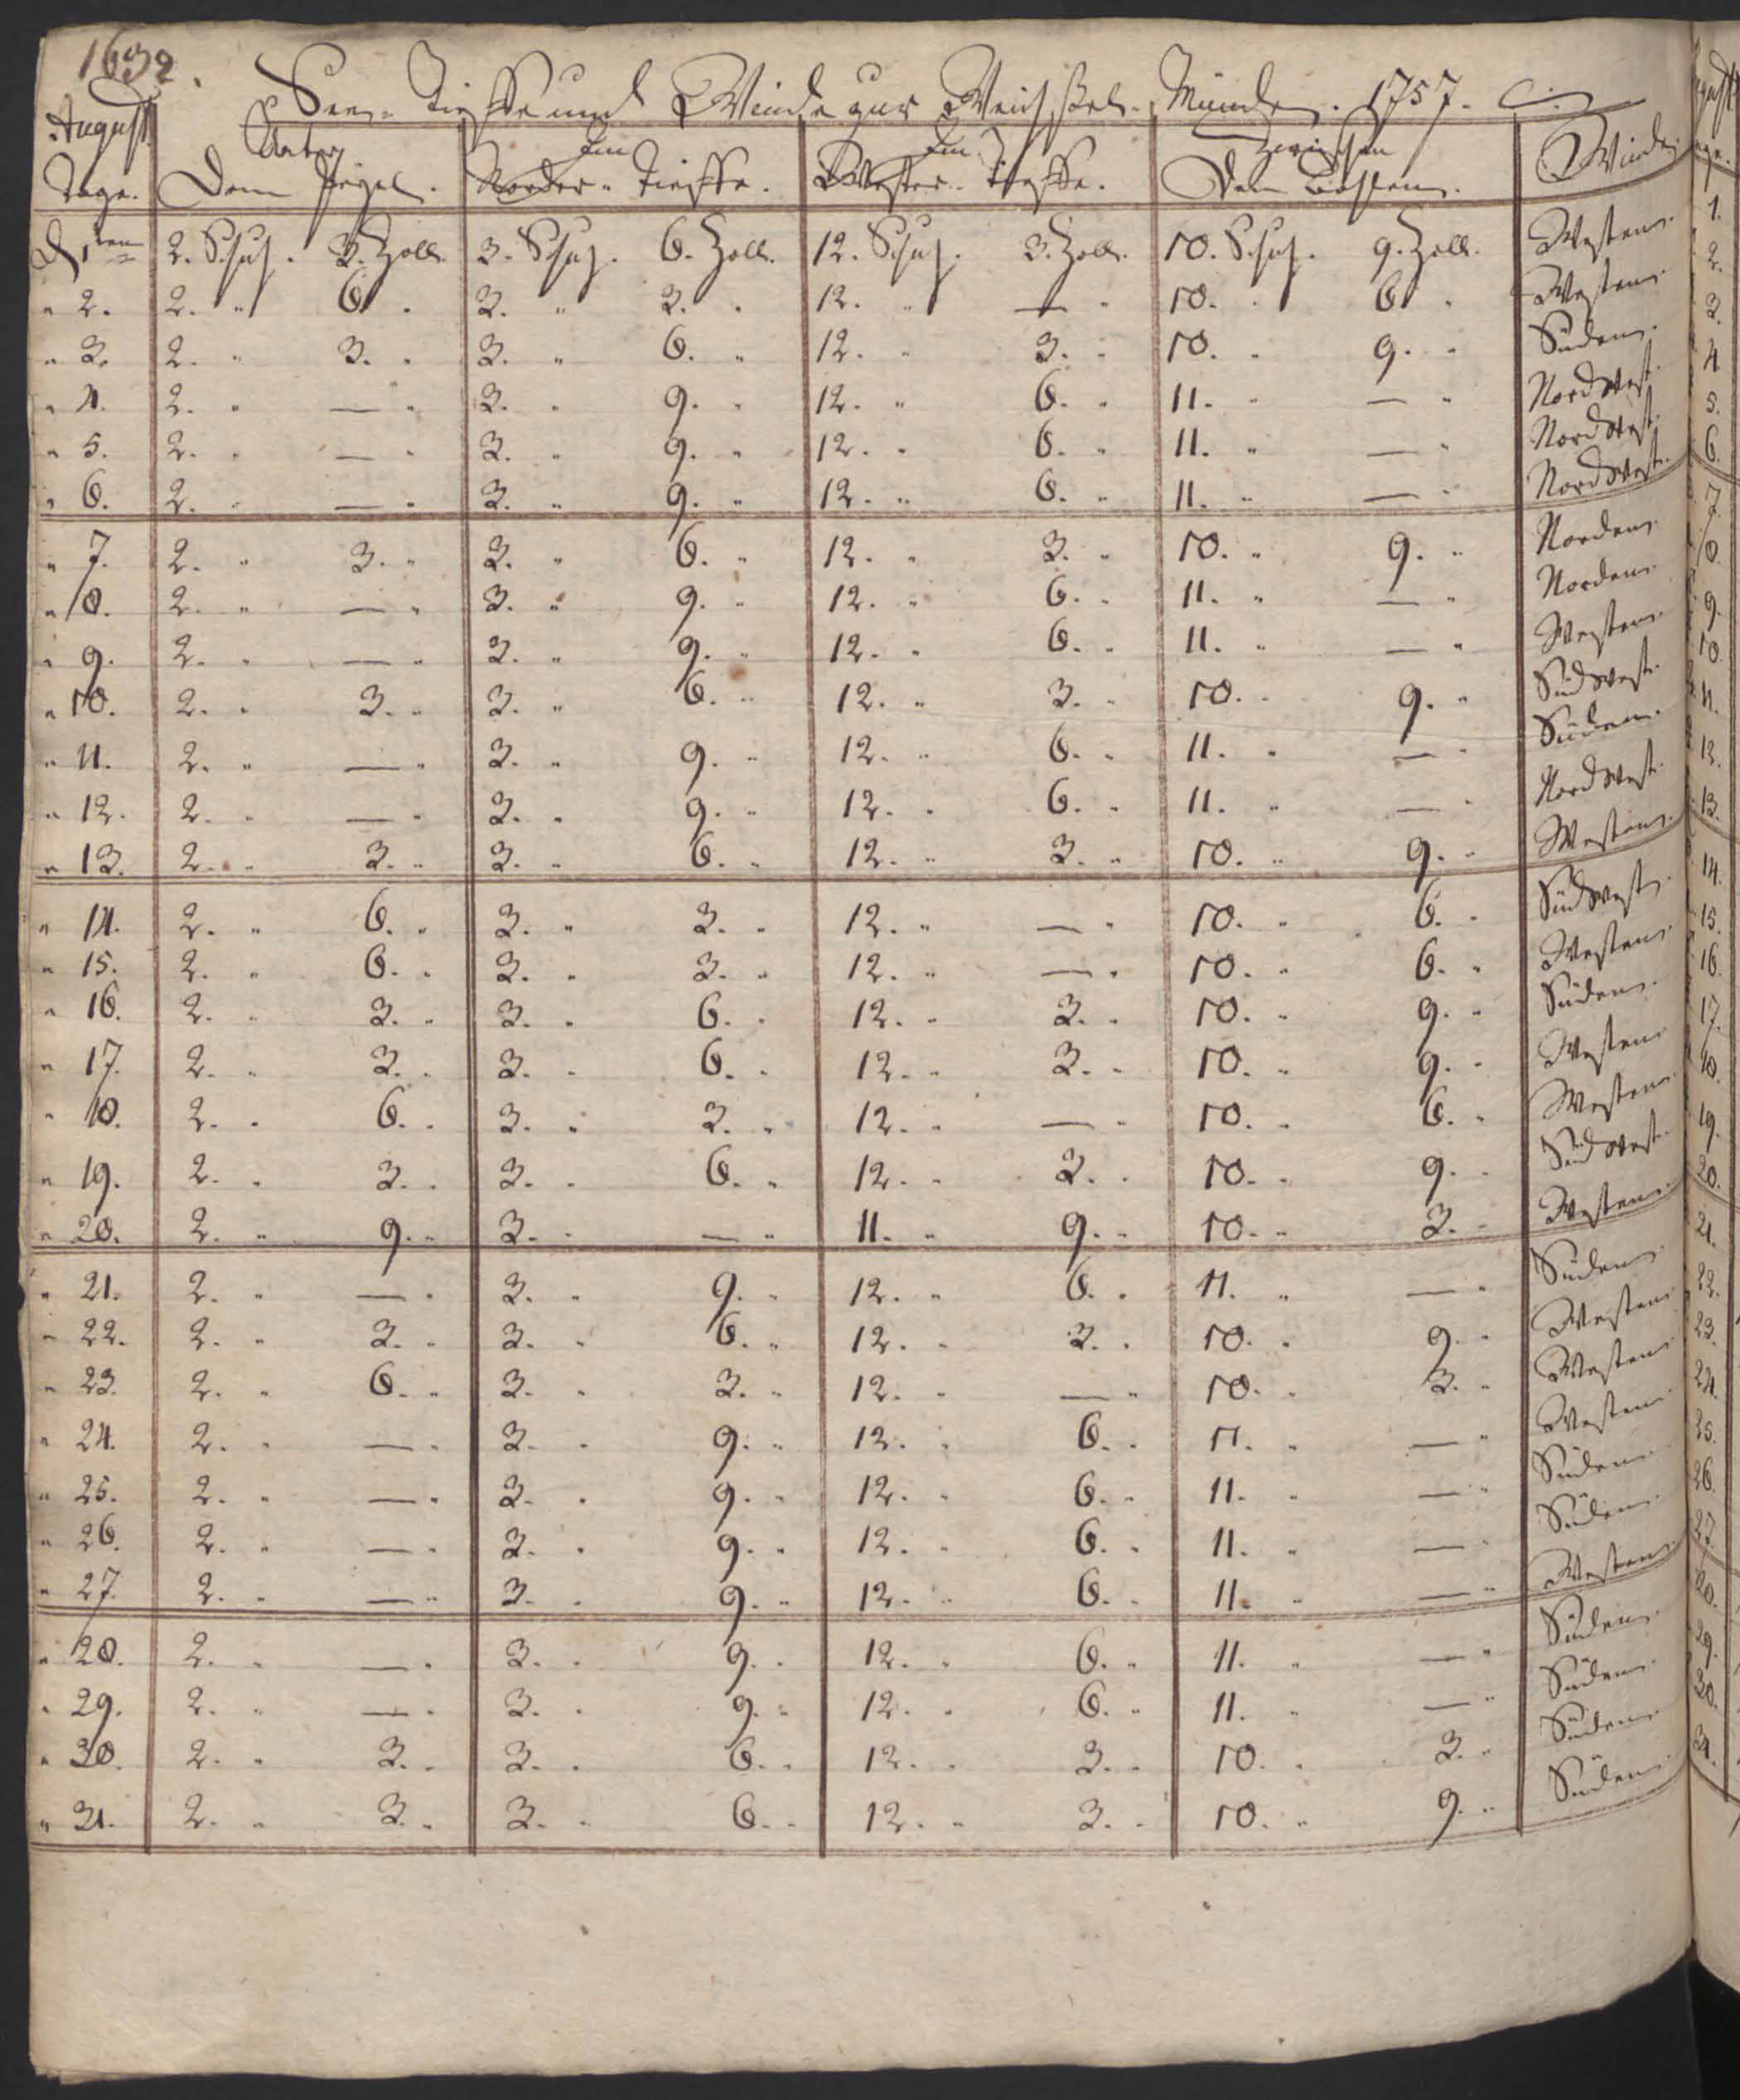 1632.
See- Tieffe und Winde zur Weichsel- Münde. 1757.
August Unter Im Im Zwischen Winde.
Tage. Dem Pegel. Norder- Tieffe. Wester- Tieffe. Den
D. 1ten 2. Schuh. 3. Zoll. 3. Schuh. 6. Zoll. 12. Schuh. 3. Zoll. 10. Schuh. 9. Zoll. Westen.
" 2. 2. " 6. " 3. " 3. " 12. " — " 10. " 6. " Westen.
" 3. 2. " 3. " 3. " 6. " 12. " 3. " 10. " 9. " Süden.
" 4. 2. " — " 3. " 9. " 12. " 6. " 11. " — " NordWest.
" 5. 2. " — " 3. " 9. " 12. " 6. " 11. " — " NordWest.
" 6. 2. " — " 3. " 9. " 12. " 6. " 11. " — " NordWest.
" 7. 2. " 3. " 3. " 6. " 12. " 3. " 10. " 9. " Norden.
" 8. 2. " — " 3. " 9. " 12. " 6. " 11. " — " Norden.
" 9. 2. " — " 3. " 9. " 12. " 6. " 11. " — " Westen.
" 10. 2. " 3. " 3. " 6. " 12. " 3. " 10. " 9. " SüdWest.
" 11. 2. " — " 3. " 9. " 12. " 6. " 11. " — " Süden.
" 12. 2. " — " 3. " 9. " 12. " 6. " 11. " — " NordWest.
" 13. 2. " 3. " 3. " 6. " 12. " 3. " 10. " 9. " Westen.
" 14. 2. " 6. " 3. " 3. " 12. " — " 10. " 6. " SüdWest.
" 15. 2. " 6. " 3. " 3. " 12. " — " 10. " 6. " Westen.
" 16. 2. " 3. " 3. " 6. " 12. " 3. " 10. " 9. " Süden.
" 17. 2. " 3. " 3. " 6. " 12. " 3. " 10. " 9. " Westen
" 18. 2. " 6. " 3. " 3. " 12. " — " 10. " 6. " Westen.
" 19. 2. " 3. " 3. " 6. " 12. " 3. " 10. " 9. " SüdWest.
" 20. 2. " 9. " 3. " — " 11. " 9. " 10. " 3. " Westen.
" 21. 2. " — " 3. " 9. " 12. " 6. " 11. " — " Süden.
" 22. 2. " 3. " 3. " 6. " 12. " 3. " 10. " 9. " Westen.
" 23. 2. " 6. " 3. " 3. " 12. " — " 10. " 3. " Westen.
" 24. 2. " — " 3. " 9. " 12. " 6. " 11. " — " Westen.
" 25. 2. " — " 3. " 9. " 12. " 6. " 11. " — " Süden.
" 26. 2. " — " 3. " 9. " 12. " 6. " 11. " — " Süden.
" 27. 2. " — " 3. " 9. " 12. " 6. " 11. " — " Westen.
" 28. 2. " — " 3. " 9. " 12. " 6. " 11. " — " Süden.
" 29. 2. " — " 3. " 9. " 12. " 6. " 11. " — " Süden.
" 30. 2. " 3. " 3. " 6. " 12. " 3. " 10. " 3. " Süden.
" 31. 2. " 3. " 3. " 6. " 12. " 3. " 10. " 9. " Süden.